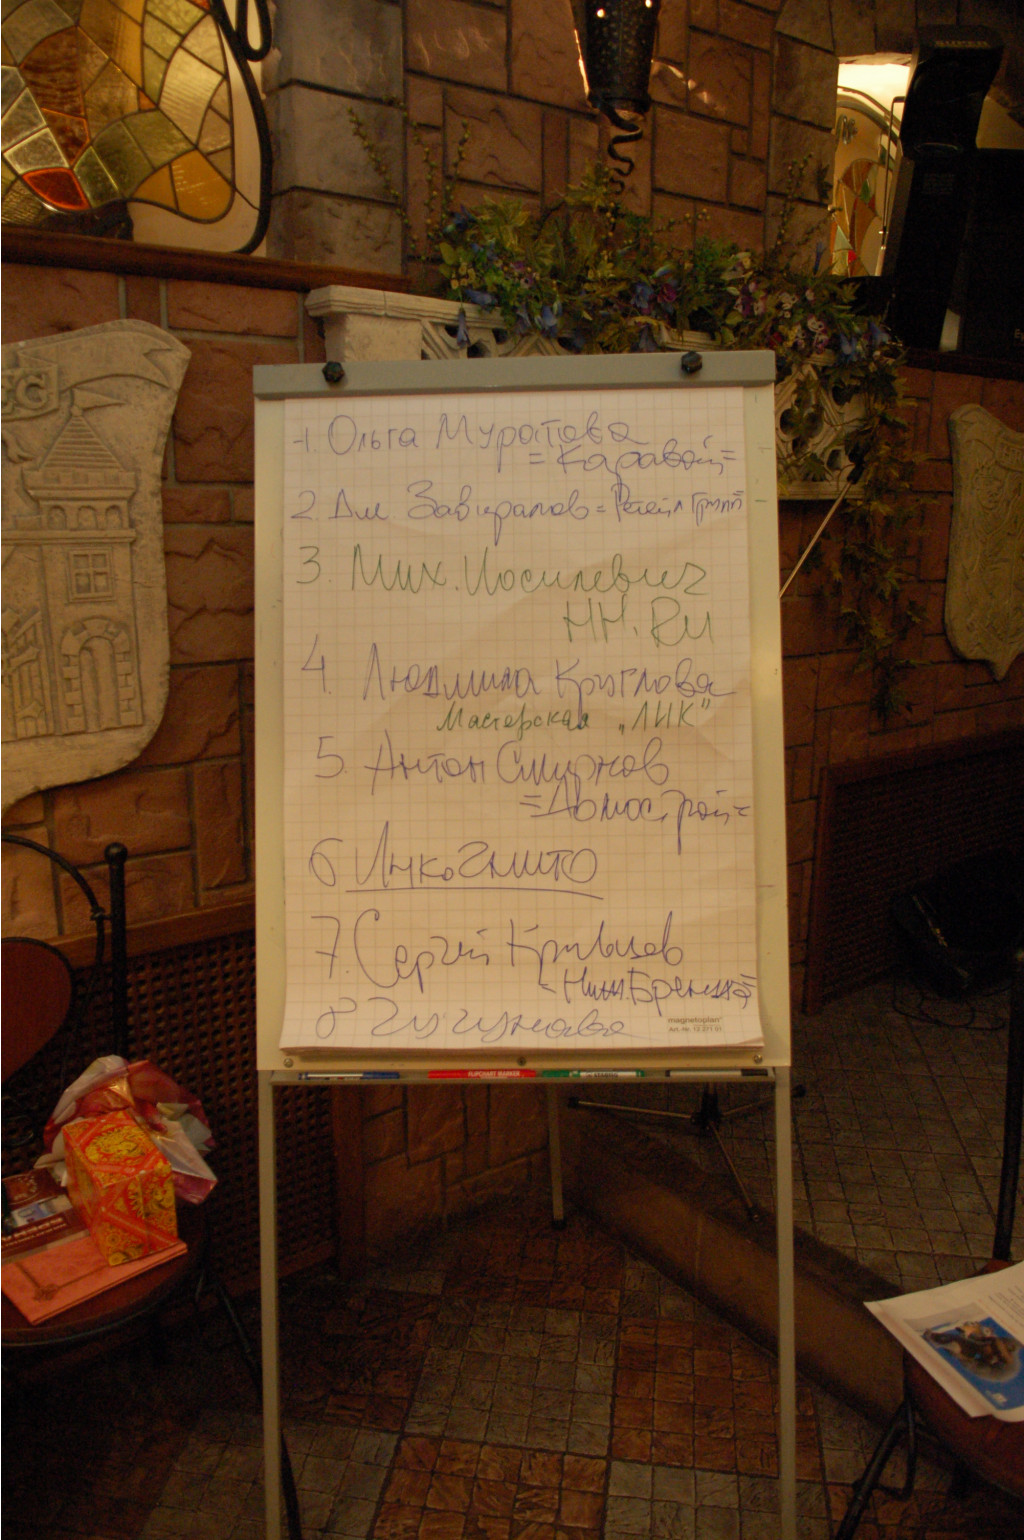 1. Ольга Муратова
=Каравай=
2. Дм. Завиралов = Ритейл Групп
3. Мих. Иосилевич
НН.RU
4. Людмила Круглова
Мастерская "ЛИК"
5. Антон Смирнов
=Домострой=
6 Инкогнито
7. Сергей Кривцев
8 Чугунова
magnetoplan
FLIPCHART MARKER